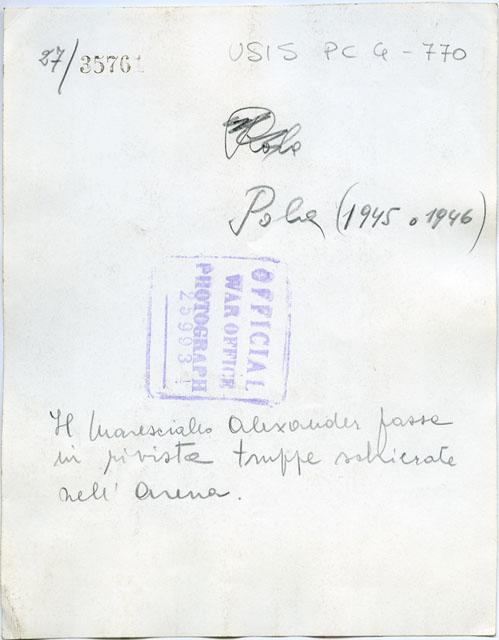 27/35761 USIS PC 4-770
Pola (1945 o 1946)
OFFICIAL
WAR OFFICE
PHOTOGRAPH
Il Maresciallo Alexander passa
in rivista truppe schierate
nell' Arena.